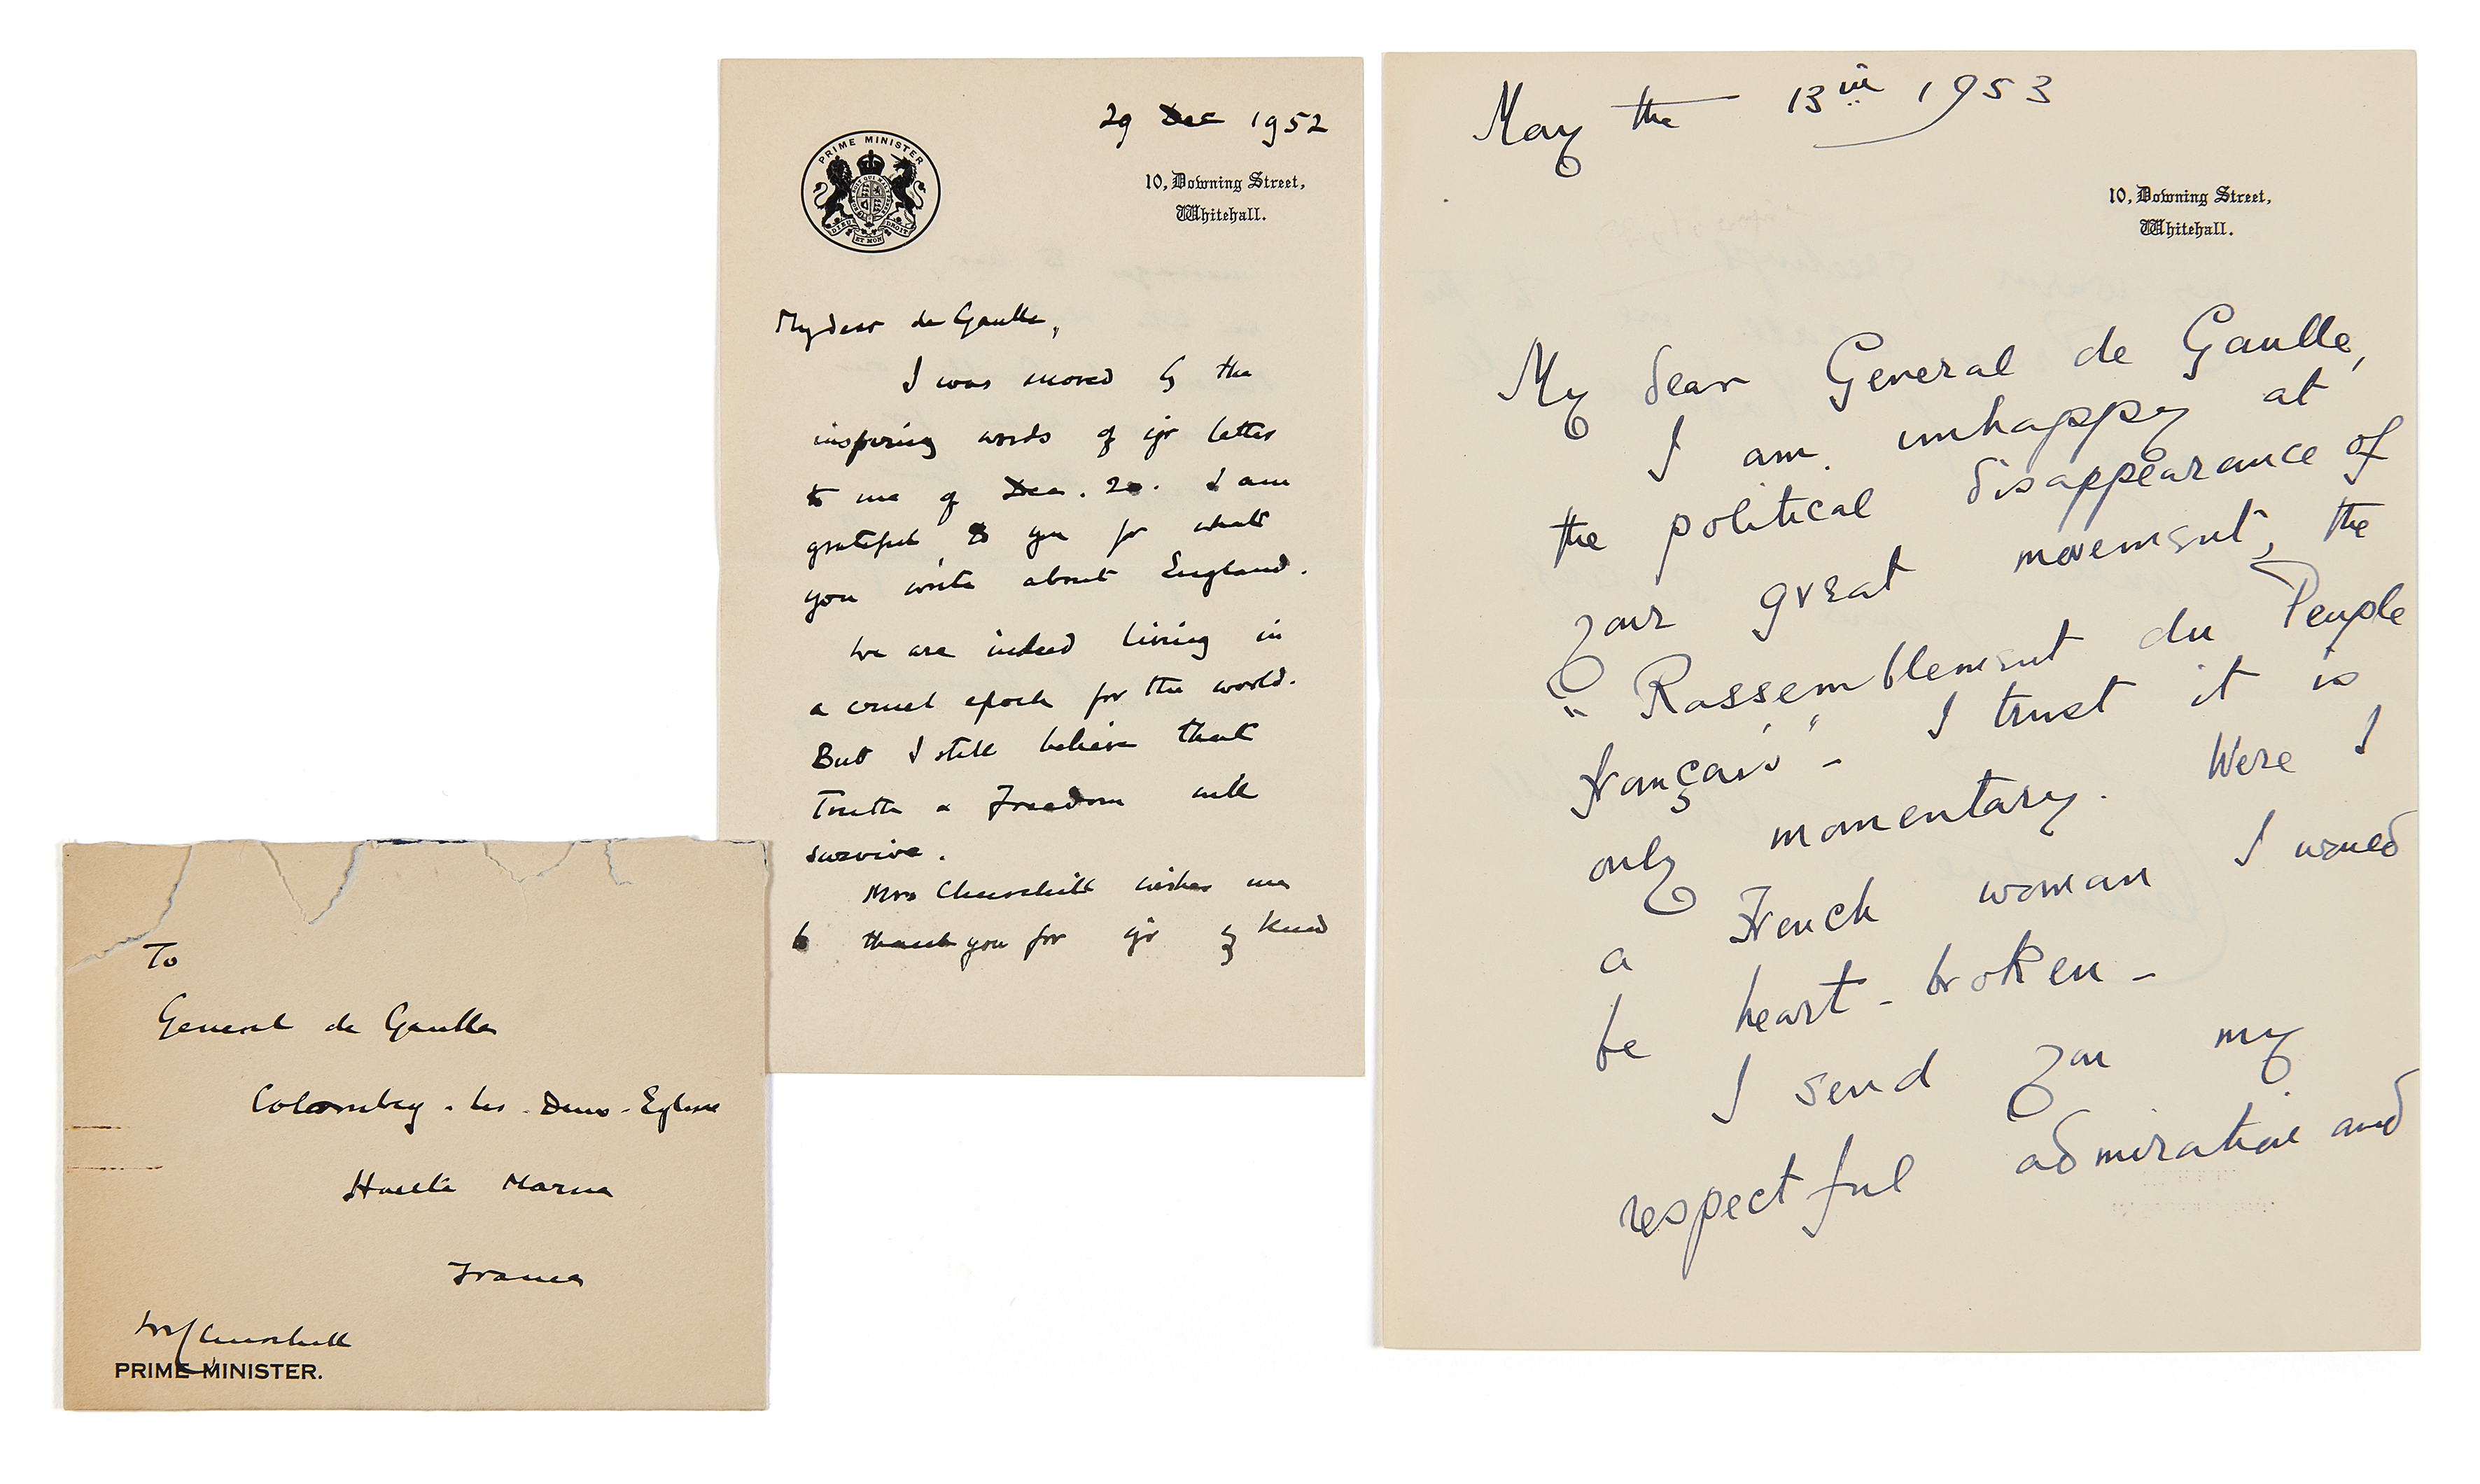 To
General de Gaulle
Colombey-les-Deux-Eglises
Haute Marne
France
W Churchill
PRIME MINISTER.
29 Dec 1952
PRIME MINISTER
DIEU ET MON DROIT
10, Downing Street,
Whitehall.
My dear de Gaulle,
I was moved by the
inspiring words of yr letter
to me of Dec. 20. I am
grateful to you for what
you write about England.
We are indeed living in
a cruel epoch for the world.
But I still believe that
Truth & Freedom will
survive.
Mrs Churchill wishes me
to thank you for yr kind
May the 13th 1953
10, Downing Street,
Whitehall.
My dear General de Gaulle,
I am unhappy at
the political disappearance of
your great movement, the
"Rassemblement du Peuple
Français" - I trust it is
only momentary. Were I
a French woman I would
be heart-broken -
I send you my
respectful admiration and